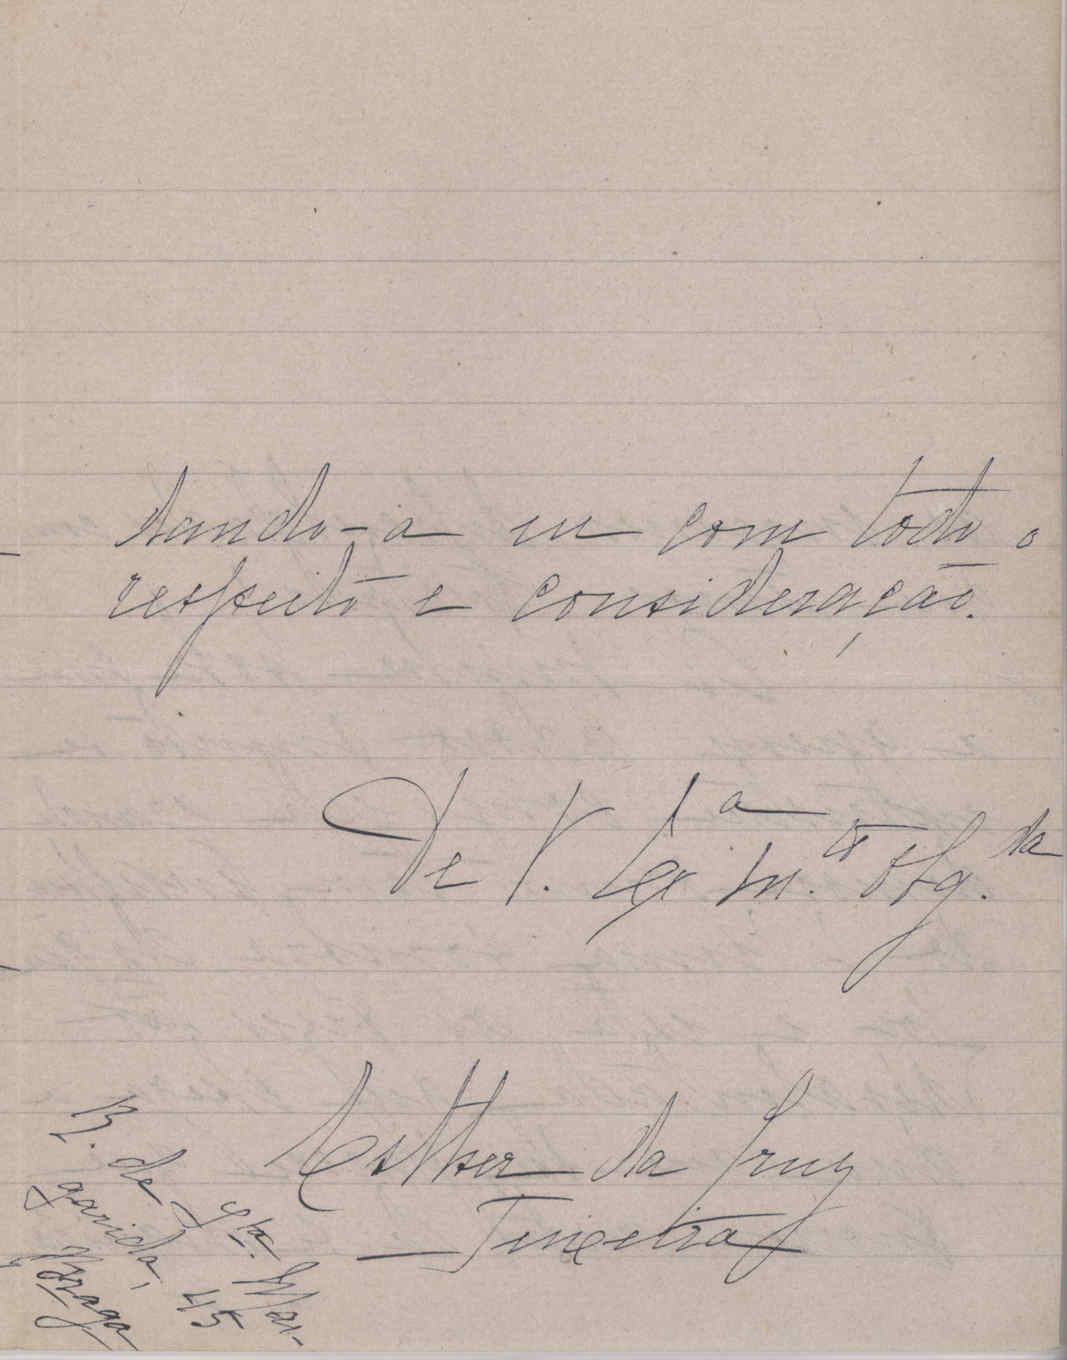 tando-a eu com todo o
respeito e consideração.
De V. Ex.ª m.to Obg.da
Esther da Cruz
Teixeira
R. de Sta. Mar-
garida, 45
Braga